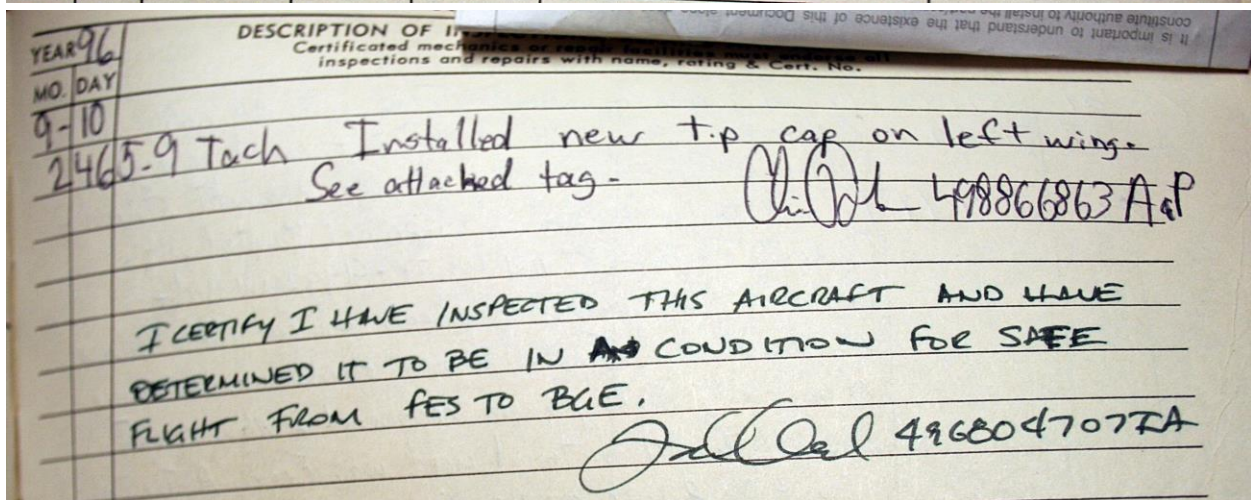 constitute authority to install the
It is important to understand that the existence of this Document
YEAR 96
DESCRIPTION OF
Certificated mechanics or repair facilities must endorse all
inspections and repairs with name, rating & Cert. No.
MO. DAY
9-10
2465.9 Tach Installed new tip cap on left wing.
See attached tag.
498866863 A&P
I CERTIFY I HAVE INSPECTED THIS AIRCRAFT AND HAVE
DETERMINED IT TO BE IN CONDITION FOR SAFE
FLIGHT FROM FES TO BGE.
496804707IA